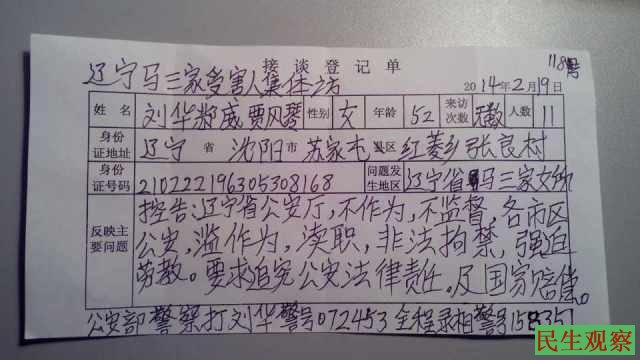 118号
接谈登记单
辽宁马三家受害人集体访
2014年2月19日
姓名 刘华郝威贾风琴 性别 女 年龄 52 来访次数 无数 人数 11
身份证地址 辽宁省 沈阳市 苏家屯县区 红菱乡张良村
身份证号码 210222196305308168 问题发生地区 辽宁省马三家女
反映主要问题
控告:辽宁省公安厅,不作为,不监督,各市区
公安,滥作为,渎职,非法拘禁,强迫
劳教。要求追究公安法律责任。及国家赔偿。
公安部警察打刘华警号072453全程录相警号15
民生观察